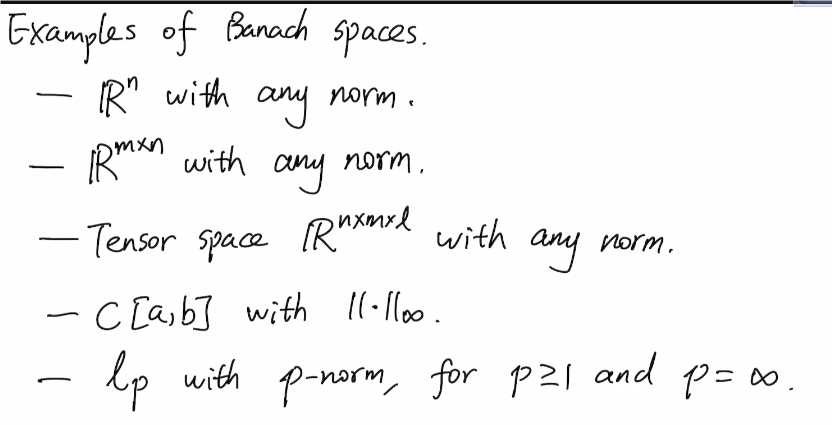 Examples of Banach spaces.
— ℝⁿ with any norm.
— ℝᵐˣⁿ with any norm.
— Tensor space ℝⁿˣᵐˣˡ with any norm.
— C[a,b] with ||·||∞.
— lp with p-norm, for p≥1 and p=∞.